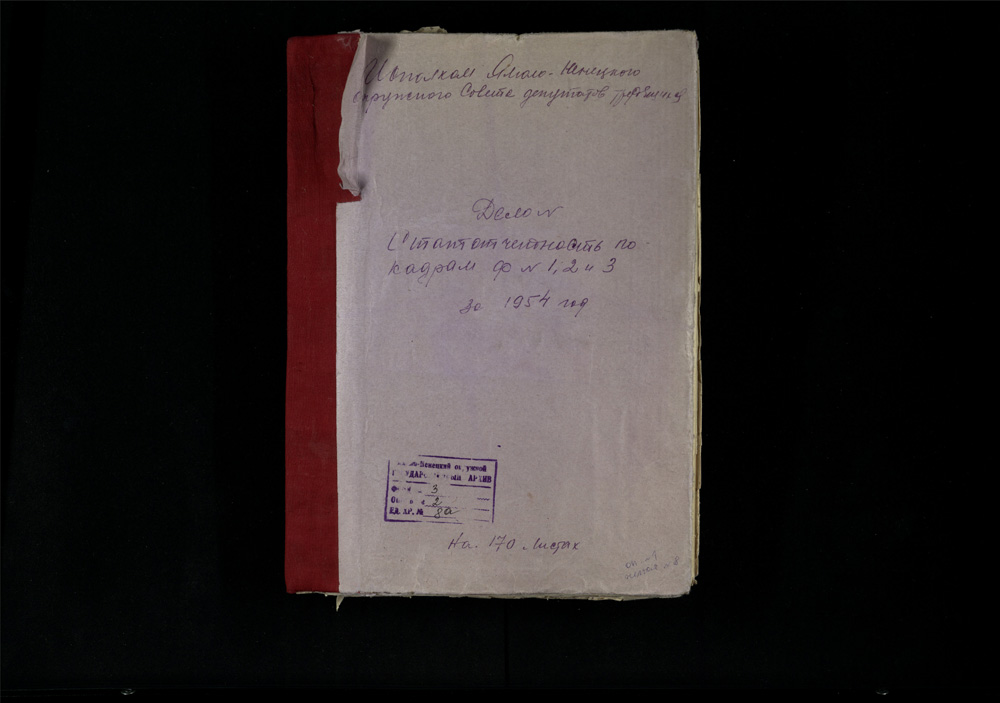 Исполком Ямало-Ненецкого
окружного Совета депутатов трудящихся
Дело №
Статотчетность по
кадрам ф № 1, 2 и 3
за 1954 год
-Ненецкий окружной
ГОСУДАРСТВЕННЫЙ АРХИВ
Фонд 3
Опись 2
ЕД. ХР. № 8а
На 170 листах
оп - 1